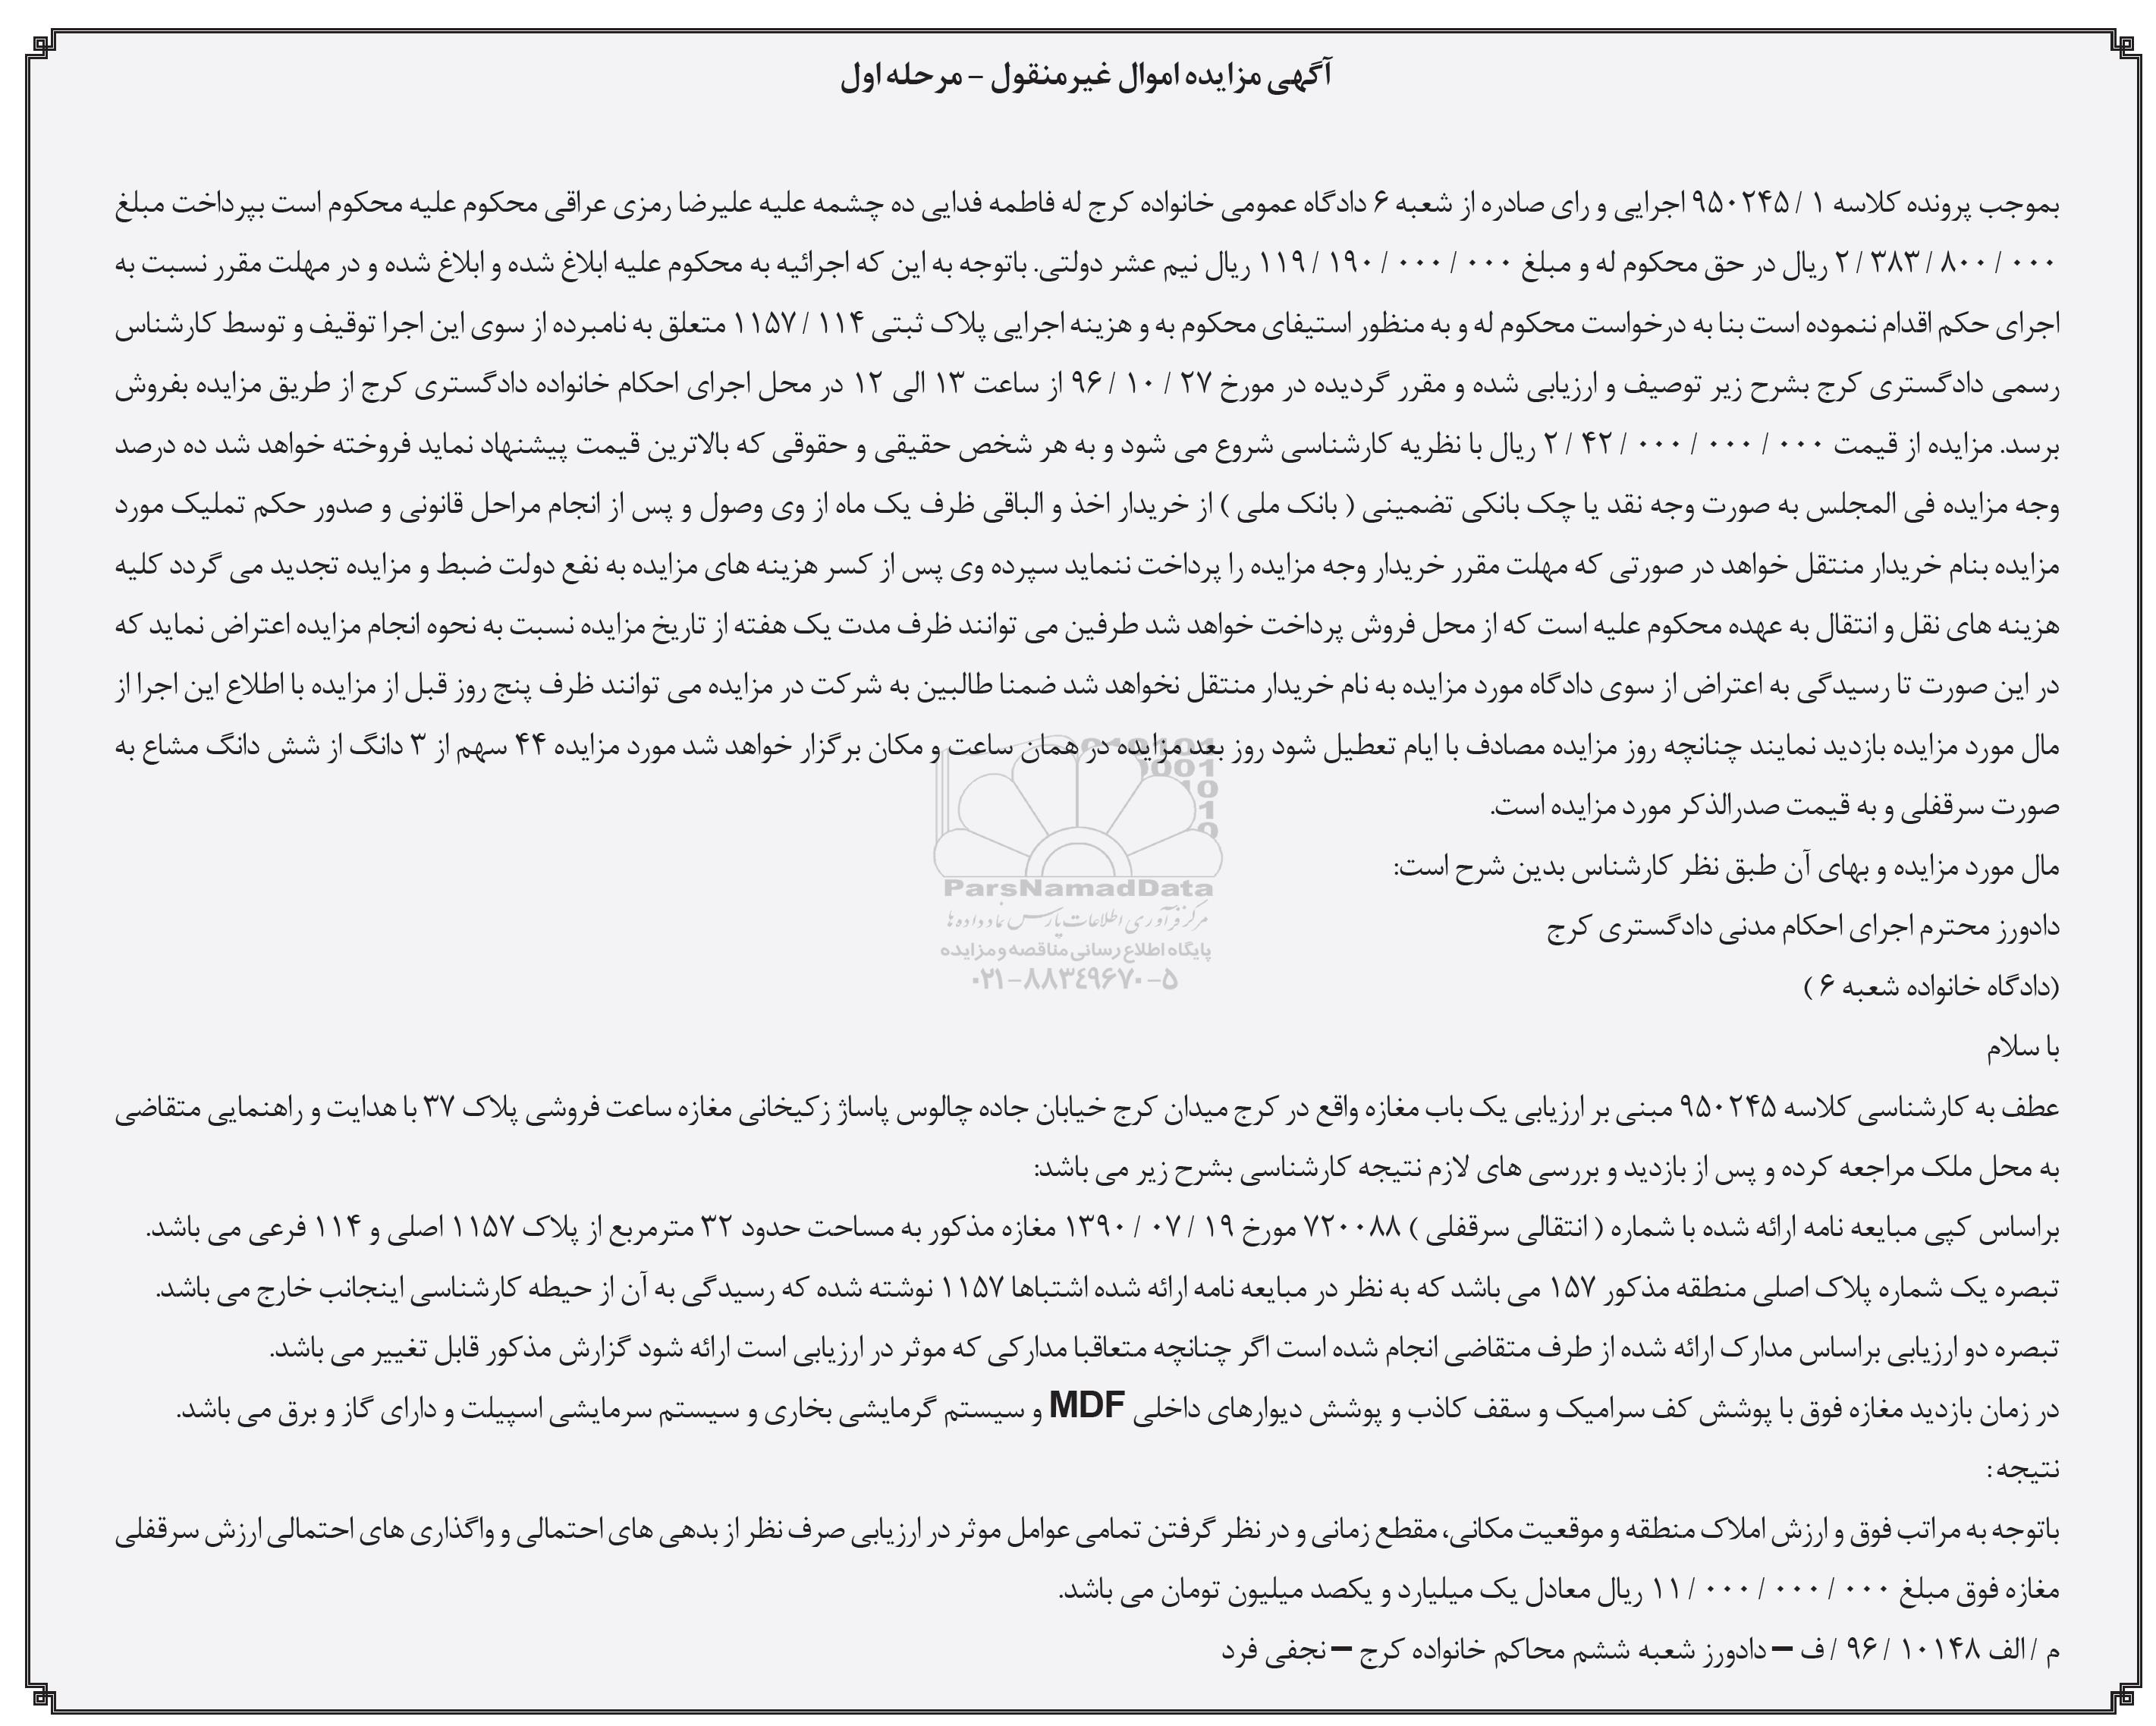 آگهی مزایده اموال غیرمنقول - مرحله اول
بموجب پرونده کلاسه ۱ / ۹۵۰۲۴۵ اجرایی و رای صادره از شعبه ۶ دادگاه عمومی خانواده کرج له فاطمه فدایی ده چشمه علیه علیرضا رمزی عراقی محکوم علیه محکوم است بپرداخت مبلغ
۰۰۰ / ۸۰۰ / ۳۸۳ / ۲ ریال در حق محکوم له و مبلغ ۰۰۰ / ۰۰۰ / ۱۹۰ / ۱۱۹ ریال نیم عشر دولتی. باتوجه به این که اجرائیه به محکوم علیه ابلاغ شده و ابلاغ شده و در مهلت مقرر نسبت به
اجرای حکم اقدام ننموده است بنا به درخواست محکوم له و به منظور استیفای محکوم به و هزینه اجرایی پلاک ثبتی ۱۱۴ / ۱۱۵۷ متعلق به نامبرده از سوی این اجرا توقیف و توسط کارشناس
رسمی دادگستری کرج بشرح زیر توصیف و ارزیابی شده و مقرر گردیده در مورخ ۲۷ / ۱۰ / ۹۶ از ساعت ۱۳ الی ۱۲ در محل اجرای احکام خانواده دادگستری کرج از طریق مزایده بفروش
برسد. مزایده از قیمت ۰۰۰ / ۰۰۰ / ۰۰۰ / ۴۲ / ۲ ریال با نظریه کارشناسی شروع می شود و به هر شخص حقیقی و حقوقی که بالاترین قیمت پیشنهاد نماید فروخته خواهد شد ده درصد
وجه مزایده فی المجلس به صورت وجه نقد یا چک بانکی تضمینی ( بانک ملی ) از خریدار اخذ و الباقی ظرف یک ماه از وی وصول و پس از انجام مراحل قانونی و صدور حکم تملیک مورد
مزایده بنام خریدار منتقل خواهد در صورتی که مهلت مقرر خریدار وجه مزایده را پرداخت ننماید سپرده وی پس از کسر هزینه های مزایده به نفع دولت ضبط و مزایده تجدید می گردد کلیه
هزینه های نقل و انتقال به عهده محکوم علیه است که از محل فروش پرداخت خواهد شد طرفین می توانند ظرف مدت یک هفته از تاریخ مزایده نسبت به نحوه انجام مزایده اعتراض نماید که
در این صورت تا رسیدگی به اعتراض از سوی دادگاه مورد مزایده به نام خریدار منتقل نخواهد شد ضمنا طالبین به شرکت در مزایده می توانند ظرف پنج روز قبل از مزایده با اطلاع این اجرا از
مال مورد مزایده بازدید نمایند چنانچه روز مزایده مصادف با ایام تعطیل شود روز بعد مزایده در همان ساعت و مکان برگزار خواهد شد مورد مزایده ۴۴ سهم از ۳ دانگ از شش دانگ مشاع به
صورت سرقفلی و به قیمت صدرالذکر مورد مزایده است.
مال مورد مزایده و بهای آن طبق نظر کارشناس بدین شرح است:
ParsNamadData
مرکز فرآوری اطلاعات پارس نماد داده ها
دادورز محترم اجرای احکام مدنی دادگستری کرج
پایگاه اطلاع رسانی مناقصه و مزایده
۰۲۱-۸۸۳۴۹۶۷۰-۵
(دادگاه خانواده شعبه ۶ )
با سلام
عطف به کارشناسی کلاسه ۹۵۰۲۴۵ مبنی بر ارزیابی یک باب مغازه واقع در کرج میدان کرج خیابان جاده چالوس پاساژ زکیخانی مغازه ساعت فروشی پلاک ۳۷ با هدایت و راهنمایی متقاضی
به محل ملک مراجعه کرده و پس از بازدید و بررسی های لازم نتیجه کارشناسی بشرح زیر می باشد:
براساس کپی مبایعه نامه ارائه شده با شماره ( انتقالی سرقفلی ) ۷۲۰۰۸۸ مورخ ۱۹ / ۰۷ / ۱۳۹۰ مغازه مذکور به مساحت حدود ۳۲ مترمربع از پلاک ۱۱۵۷ اصلی و ۱۱۴ فرعی می باشد.
تبصره یک شماره پلاک اصلی منطقه مذکور ۱۵۷ می باشد که به نظر در مبایعه نامه ارائه شده اشتباها ۱۱۵۷ نوشته شده که رسیدگی به آن از حیطه کارشناسی اینجانب خارج می باشد.
تبصره دو ارزیابی براساس مدارک ارائه شده از طرف متقاضی انجام شده است اگر چنانچه متعاقبا مدارکی که موثر در ارزیابی است ارائه شود گزارش مذکور قابل تغییر می باشد.
در زمان بازدید مغازه فوق با پوشش کف سرامیک و سقف کاذب و پوشش دیوارهای داخلی MDF و سیستم گرمایشی بخاری و سیستم سرمایشی اسپیلت و دارای گاز و برق می باشد.
نتیجه :
باتوجه به مراتب فوق و ارزش املاک منطقه و موقعیت مکانی، مقطع زمانی و در نظر گرفتن تمامی عوامل موثر در ارزیابی صرف نظر از بدهی های احتمالی و واگذاری های احتمالی ارزش سرقفلی
مغازه فوق مبلغ ۰۰۰ / ۰۰۰ / ۰۰۰ / ۱۱ ریال معادل یک میلیارد و یکصد میلیون تومان می باشد.
م / الف ۱۰۱۴۸ / ۹۶ / ف – دادورز شعبه ششم محاکم خانواده کرج – نجفی فرد